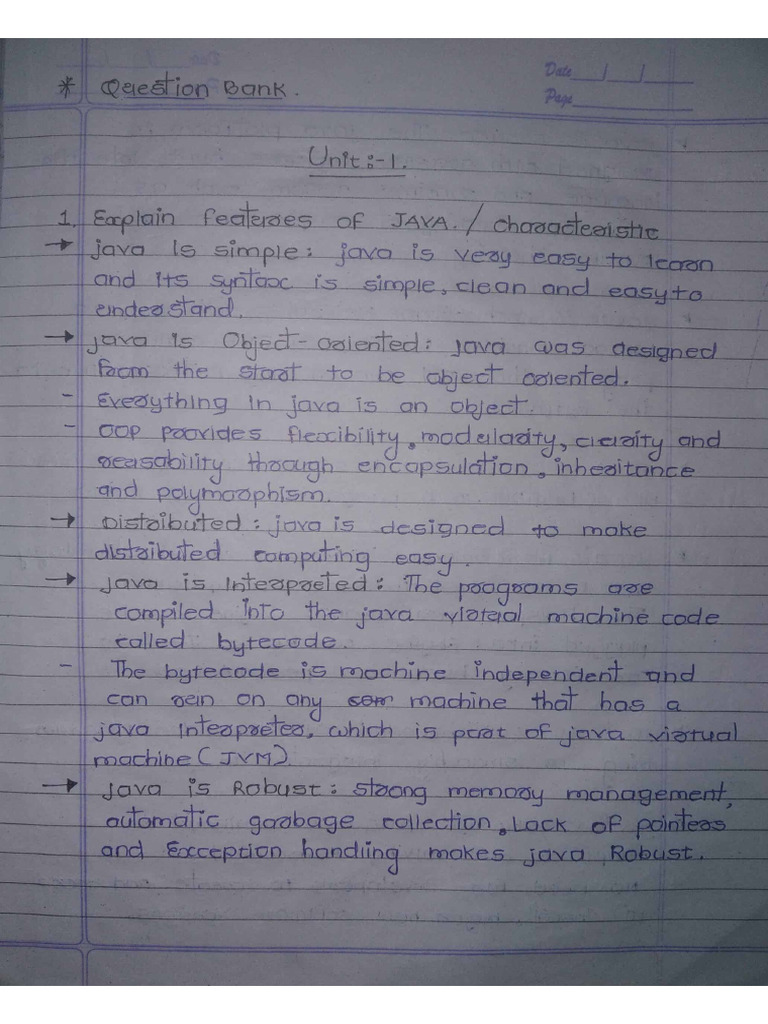 Date __/__/__
* Question Bank.
Page
Unit:-1.
1. Explain features of JAVA. / characteristic
→ java Is simple: java is very easy to learn
and its syntax is simple, clean and easy to
understand.
→ java is Object-oriented: java was designed
from the start to be object oriented.
- Everything in java is an object.
- OOP provides flexibility, modularity, clarity and
reusability through encapsulation, inheritance
and polymorphism.
→ Distributed: java is designed to make
distributed computing easy.
→ java is Interpreted: The programs are
compiled into the java virtual machine code
called bytecode.
- The bytecode is machine independent and
can run on any machine that has a
java interpreter, which is part of java virtual
machine (JVM)
→ java is Robust: strong memory management,
automatic garbage collection, Lack of pointers
and Exception handling makes java Robust.